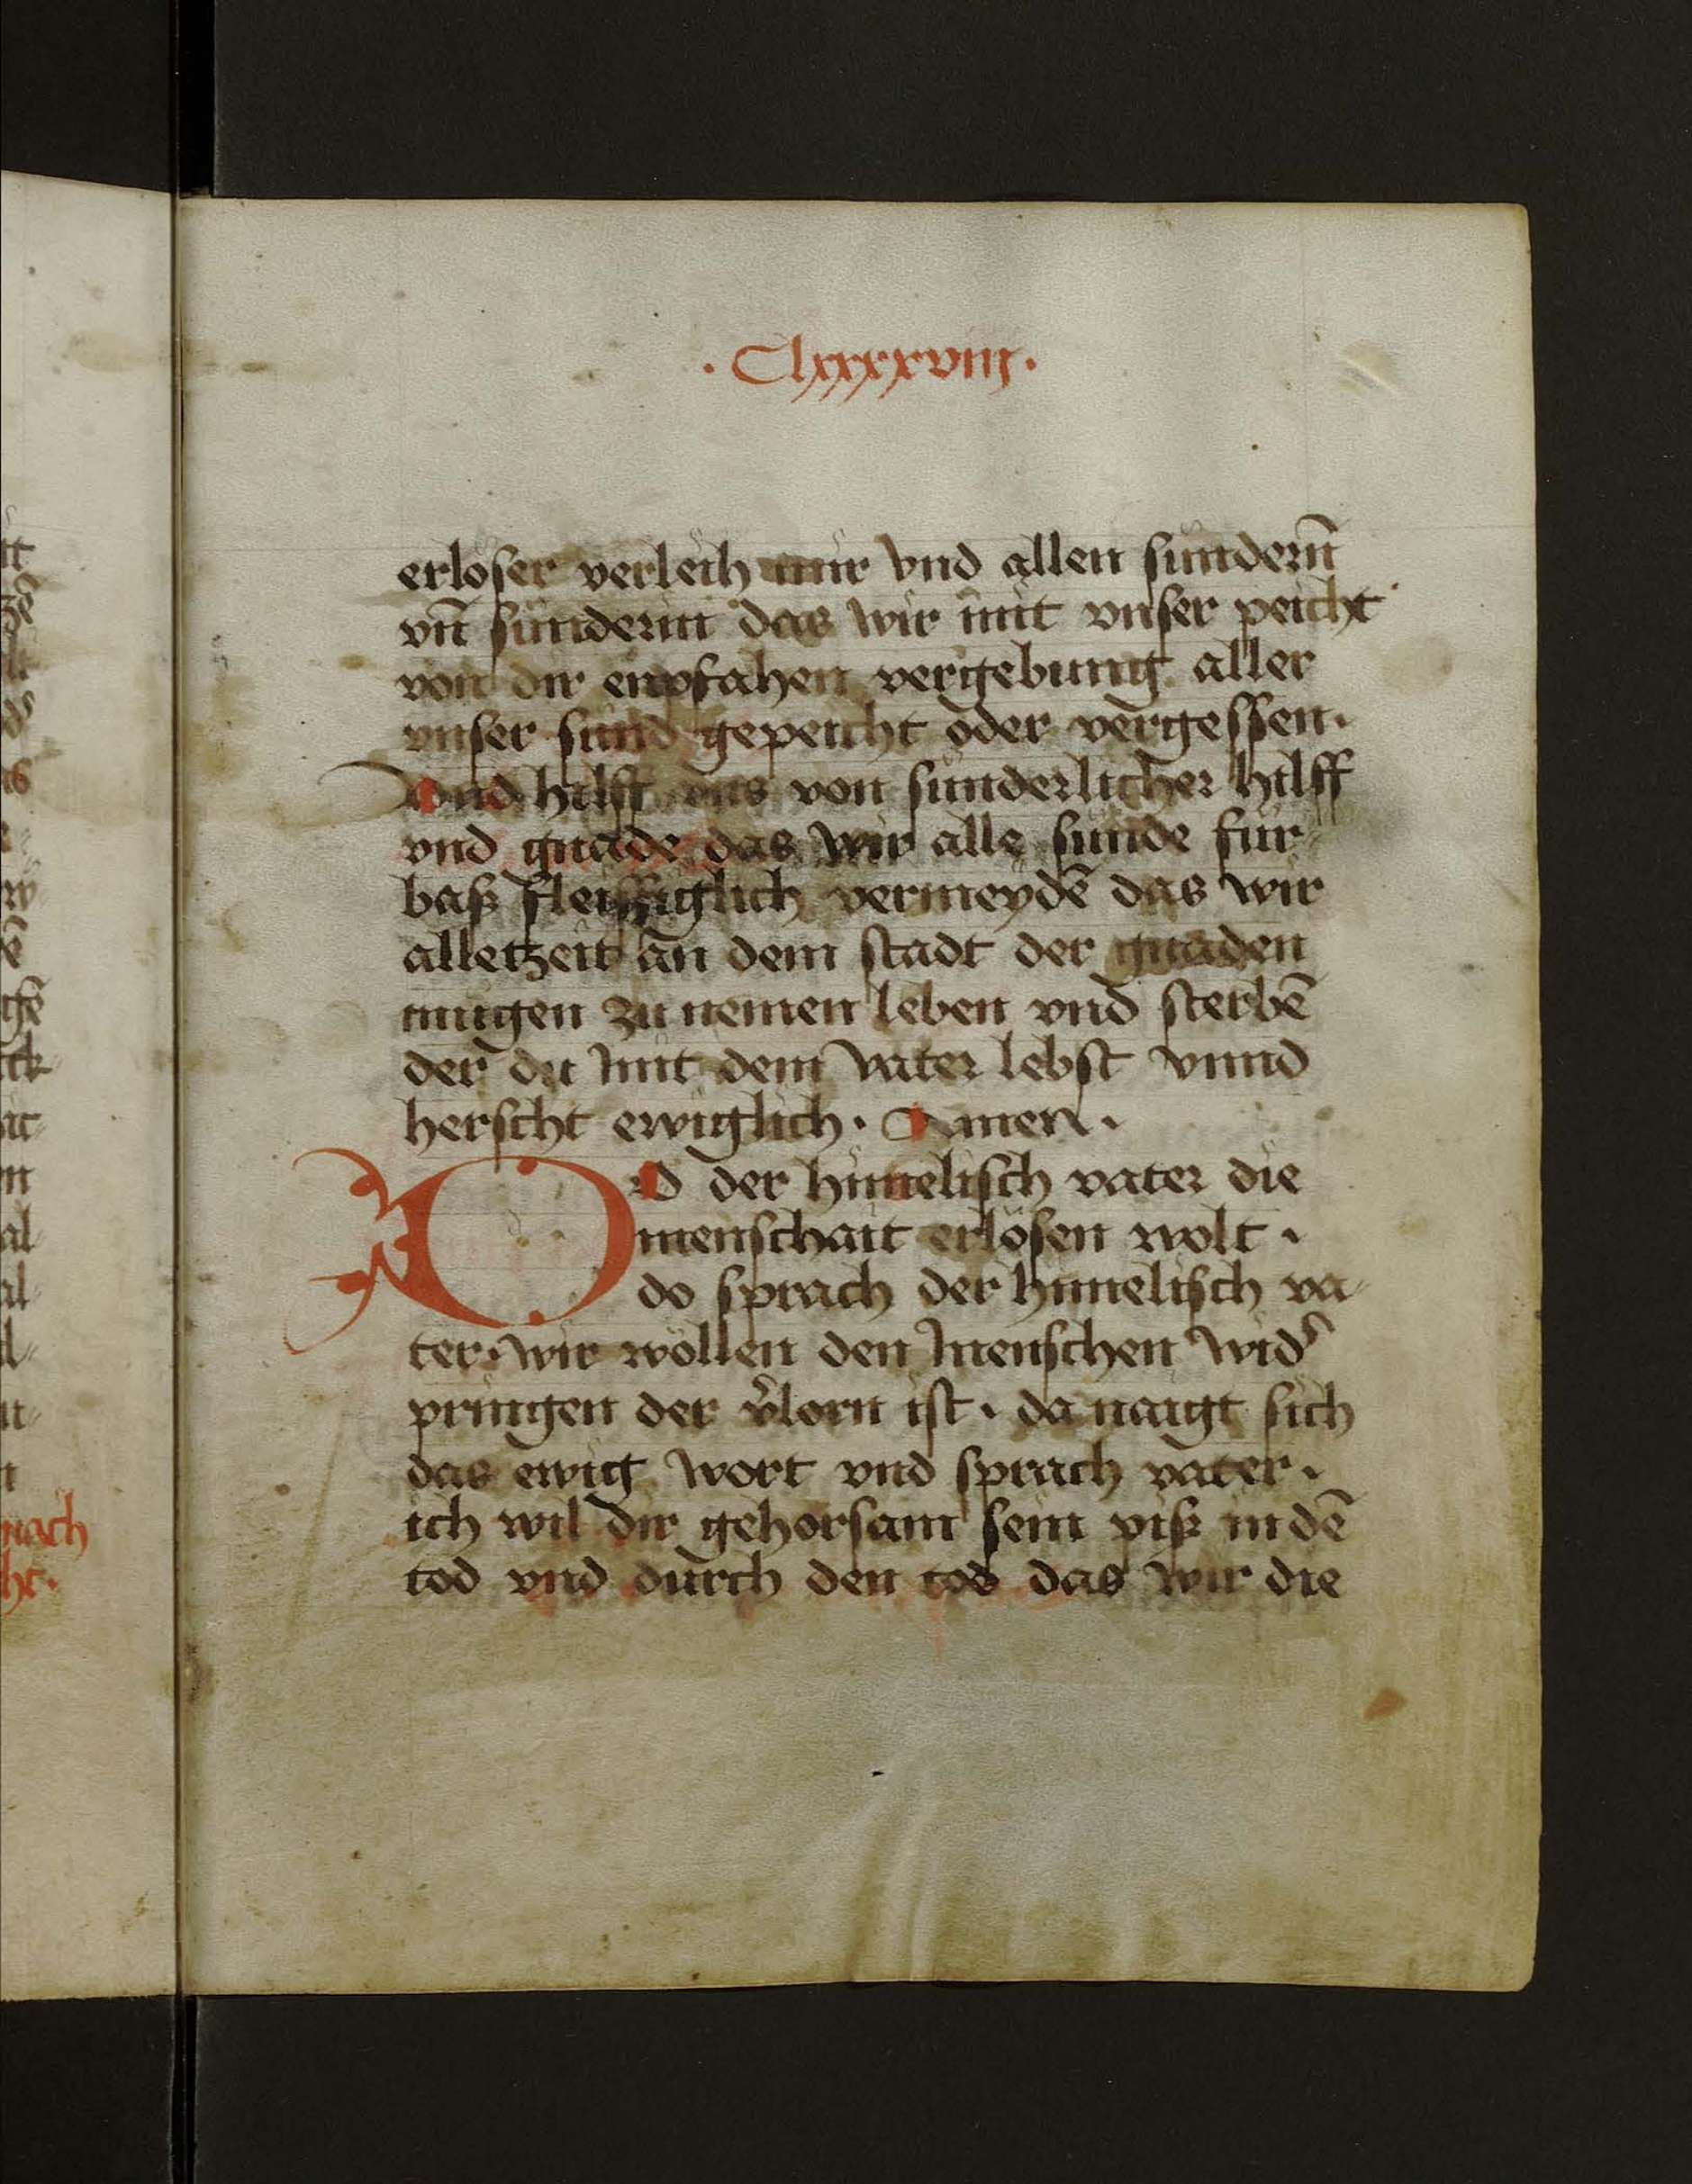 · Clxxxxviij ·
erloser verleih mir vnd allen sundern̄
vn̄ sunderin das wir mit vnser peicht
von dir enpfahen vergebung aller
vnser sund gepeicht oder vergessen ·
Vnd hilff vns von sunderlicher hilff
vnd gnade das wir alle sunde für
baß fleissiglich vermeydē das wir
alletzeit an dem stadt der gnaden
mugen zu nemen leben vnd sterbē
der du mit dem vater lebst vnnd
herscht ewiglich · Amen ·
DO der himelisch vater die
menschait erlösen wolt ·
do sprach der himelisch va-
ter · wir wöllen den menschen wid͛
pringen der v͛lorn ist · da naigt sich
das ewig wort vnd sprach vater ·
ich wil dir gehorsam sein piß in dē
tod vnd durch den tod das wir die
nach